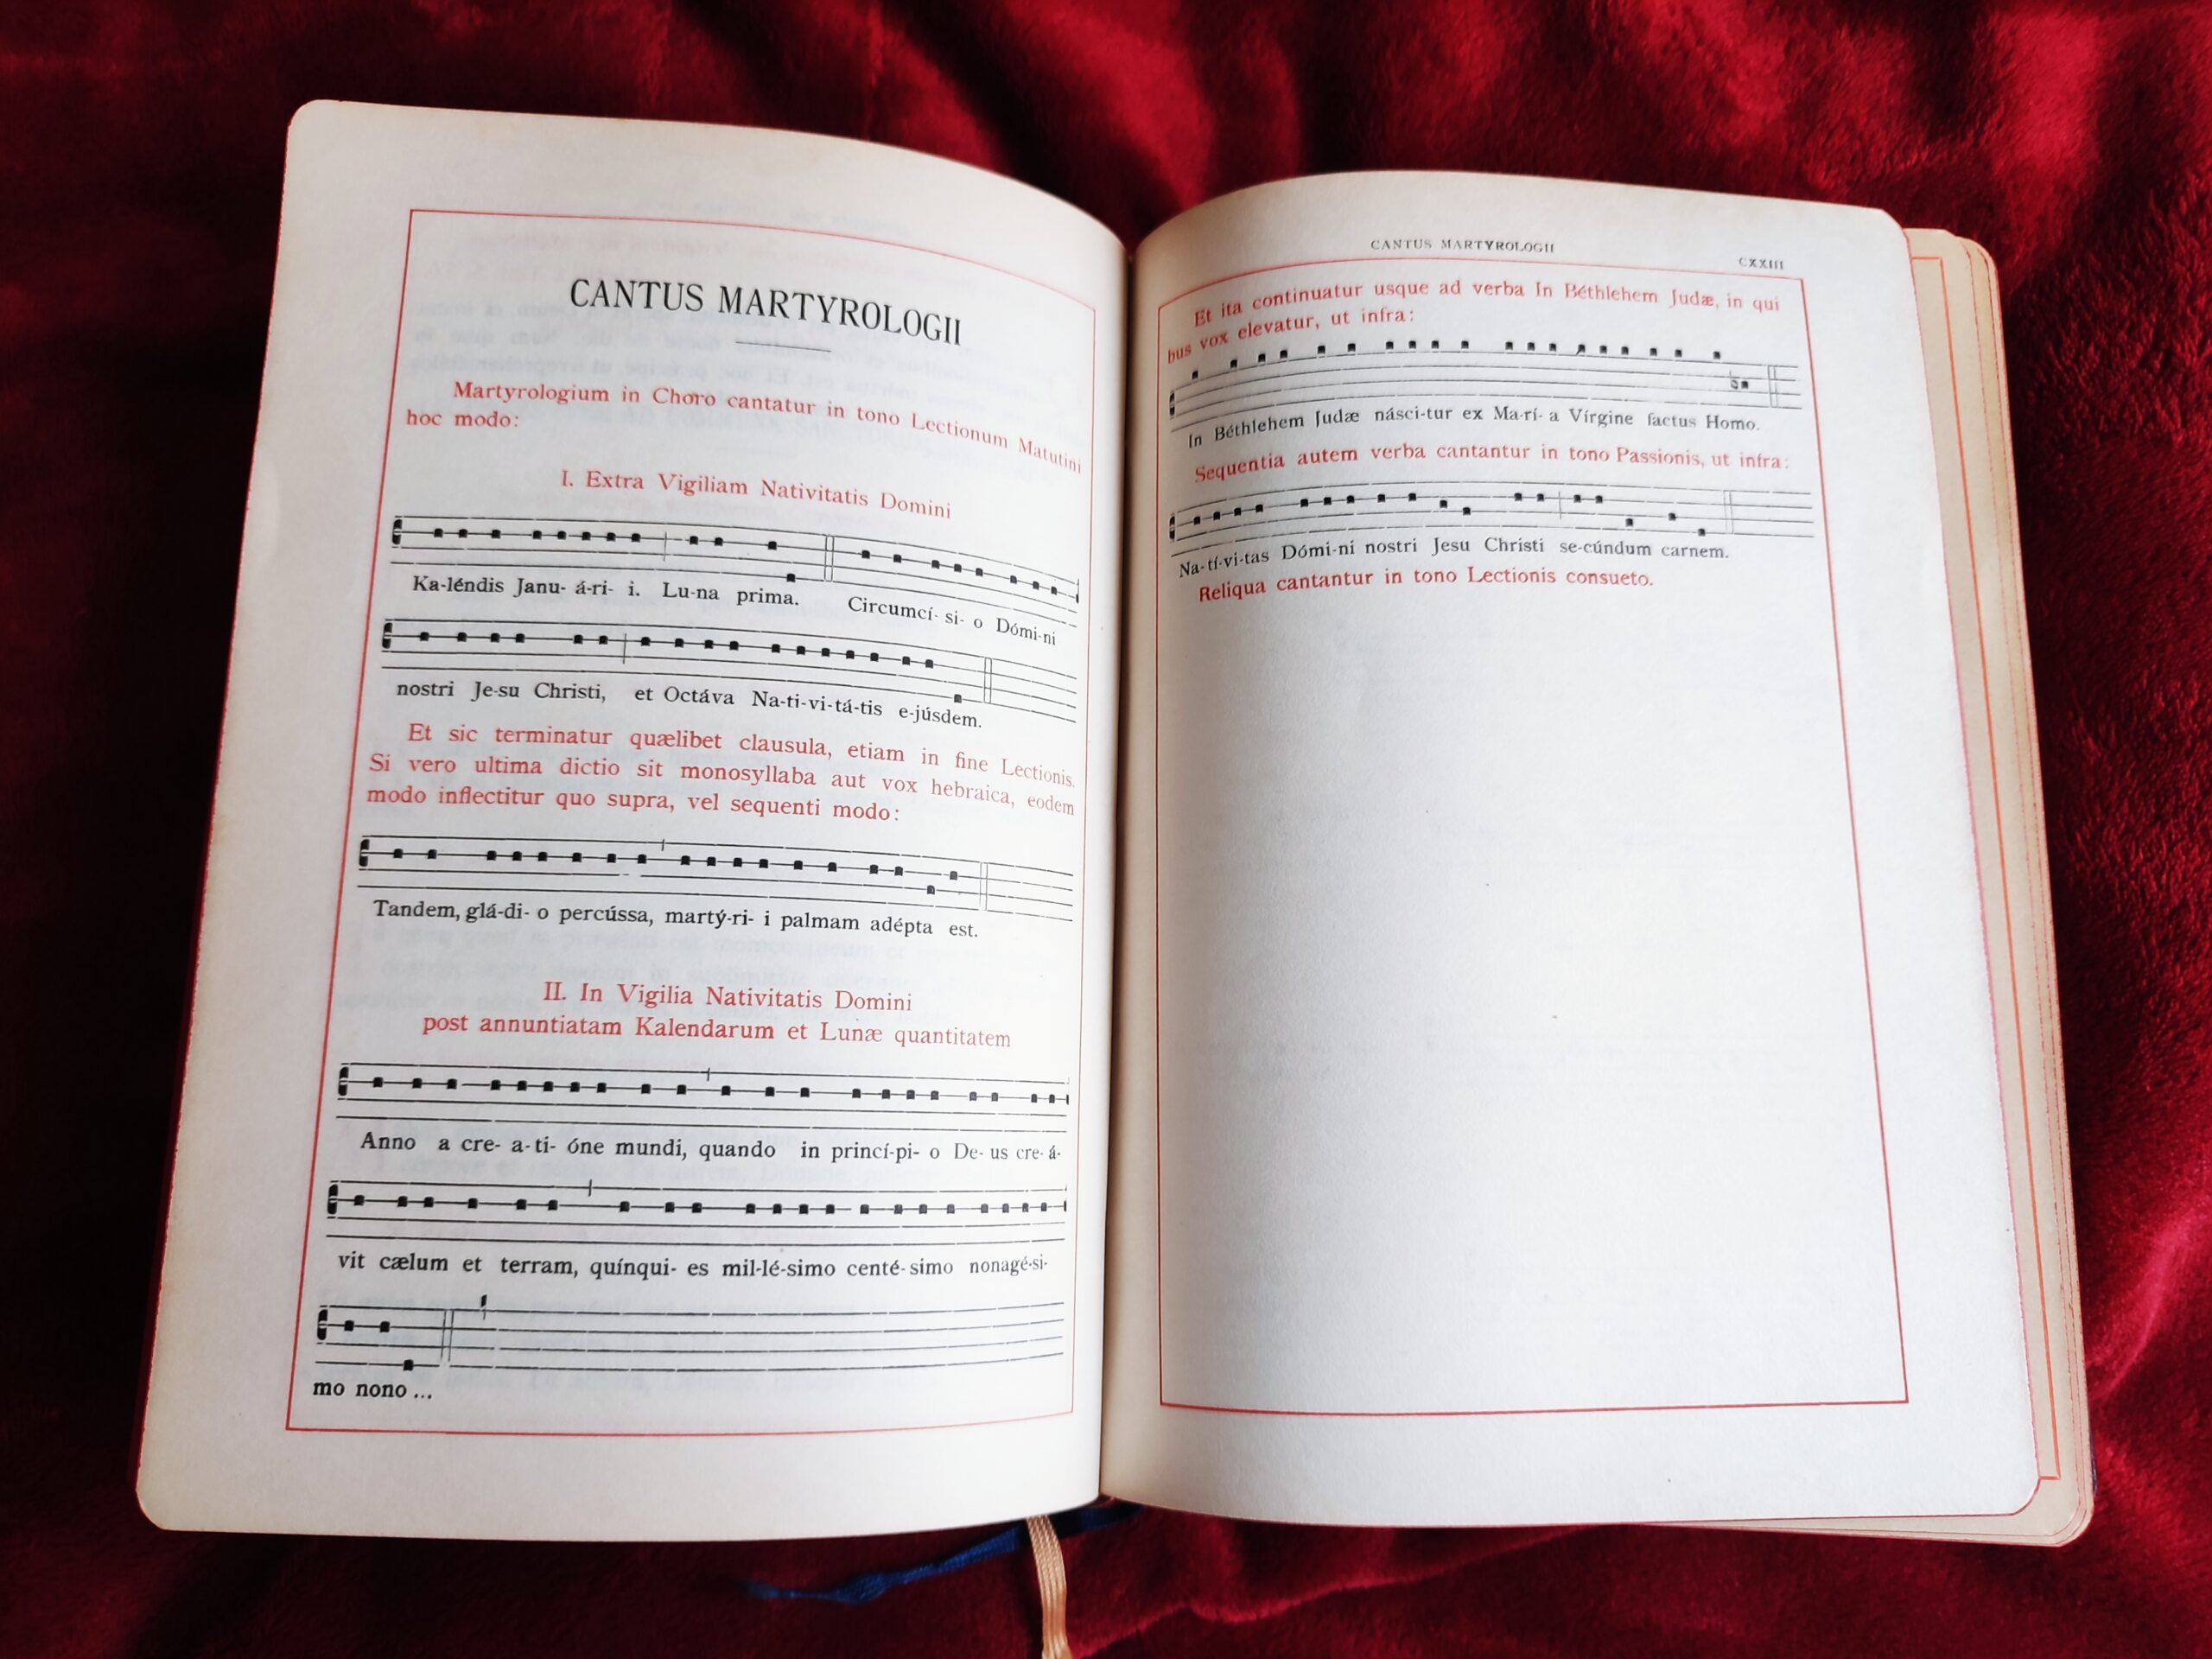 CANTUS MARTYROLOGII
Martyrologium in Choro cantatur in tono Lectionum Matutini
hoc modo:
I. Extra Vigiliam Nativitatis Domini
Ka-léndis Janu- á-ri- i. Lu-na prima. Circumcí- si- o Dómi-ni
nostri Je-su Christi, et Octáva Na-ti-vi-tá-tis e-júsdem.
Et sic terminatur quælibet clausula, etiam in fine Lectionis.
Si vero ultima dictio sit monosyllaba aut vox hebraica, eodem
modo inflectitur quo supra, vel sequenti modo:
Tandem, glá-di- o percússa, martý-ri- i palmam adépta est.
II. In Vigilia Nativitatis Domini
post annuntiatam Kalendarum et Lunæ quantitatem
Anno a cre- a-ti- óne mundi, quando in princí-pi- o De- us cre- á-
vit cælum et terram, quínqui- es mil-lé-simo centé-simo nonagé-si-
mo nono ...
CANTUS MARTYROLOGII
CXXIII
Et ita continuatur usque ad verba In Béthlehem Judæ, in qui
bus vox elevatur, ut infra:
In Béthlehem Judæ násci-tur ex Ma-rí- a Vírgine factus Homo.
Sequentia autem verba cantantur in tono Passionis, ut infra:
Na-tí-vi-tas Dómi-ni nostri Jesu Christi se-cúndum carnem.
Reliqua cantantur in tono Lectionis consueto.